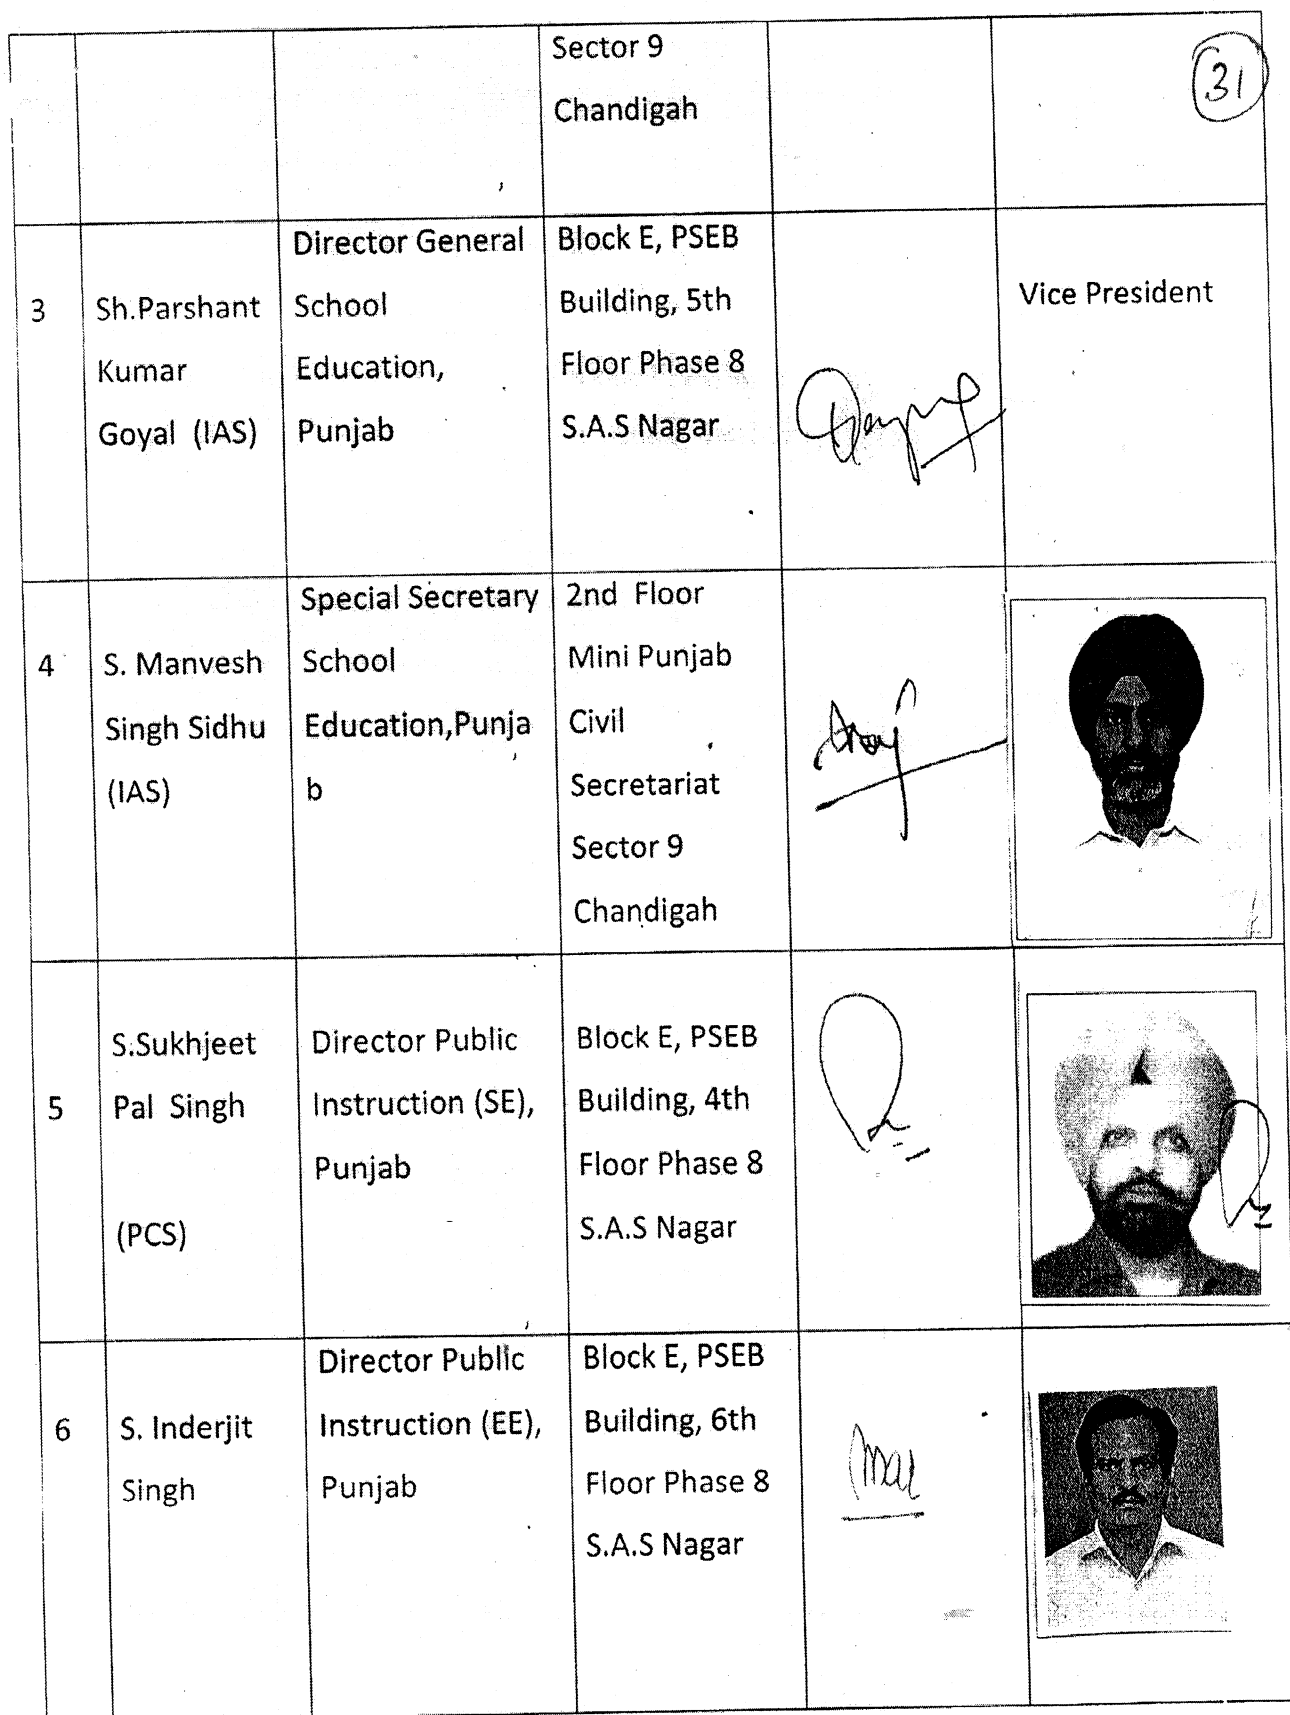 31
Sector 9
Chandigah
3
Sh.Parshant
Kumar
Goyal (IAS)
Director General
School
Education,
Punjab
Block E, PSEB
Building, 5th
Floor Phase 8
S.A.S Nagar
Vice President
4
S. Manvesh
Singh Sidhu
(IAS)
Special Secretary
School
Education,Punja
b
2nd Floor
Mini Punjab
Civil
Secretariat
Sector 9
Chandigah
5
S.Sukhjeet
Pal Singh
(PCS)
Director Public
Instruction (SE),
Punjab
Block E, PSEB
Building, 4th
Floor Phase 8
S.A.S Nagar
6
S. Inderjit
Singh
Director Public
Instruction (EE),
Punjab
Block E, PSEB
Building, 6th
Floor Phase 8
S.A.S Nagar